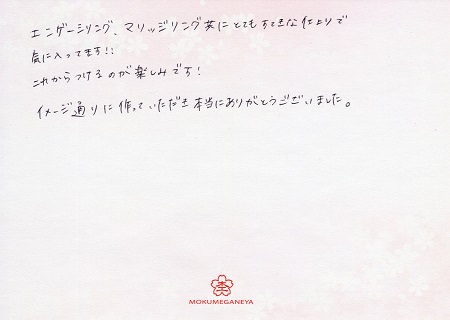 エンゲージリング、マリッジリング共にとてもすてきな仕上りで
気に入ってます!!
これからつけるのが楽しみです!
イメージ通りに作っていただき本当にありがとうございました。
杢
MOKUMEGANEYA